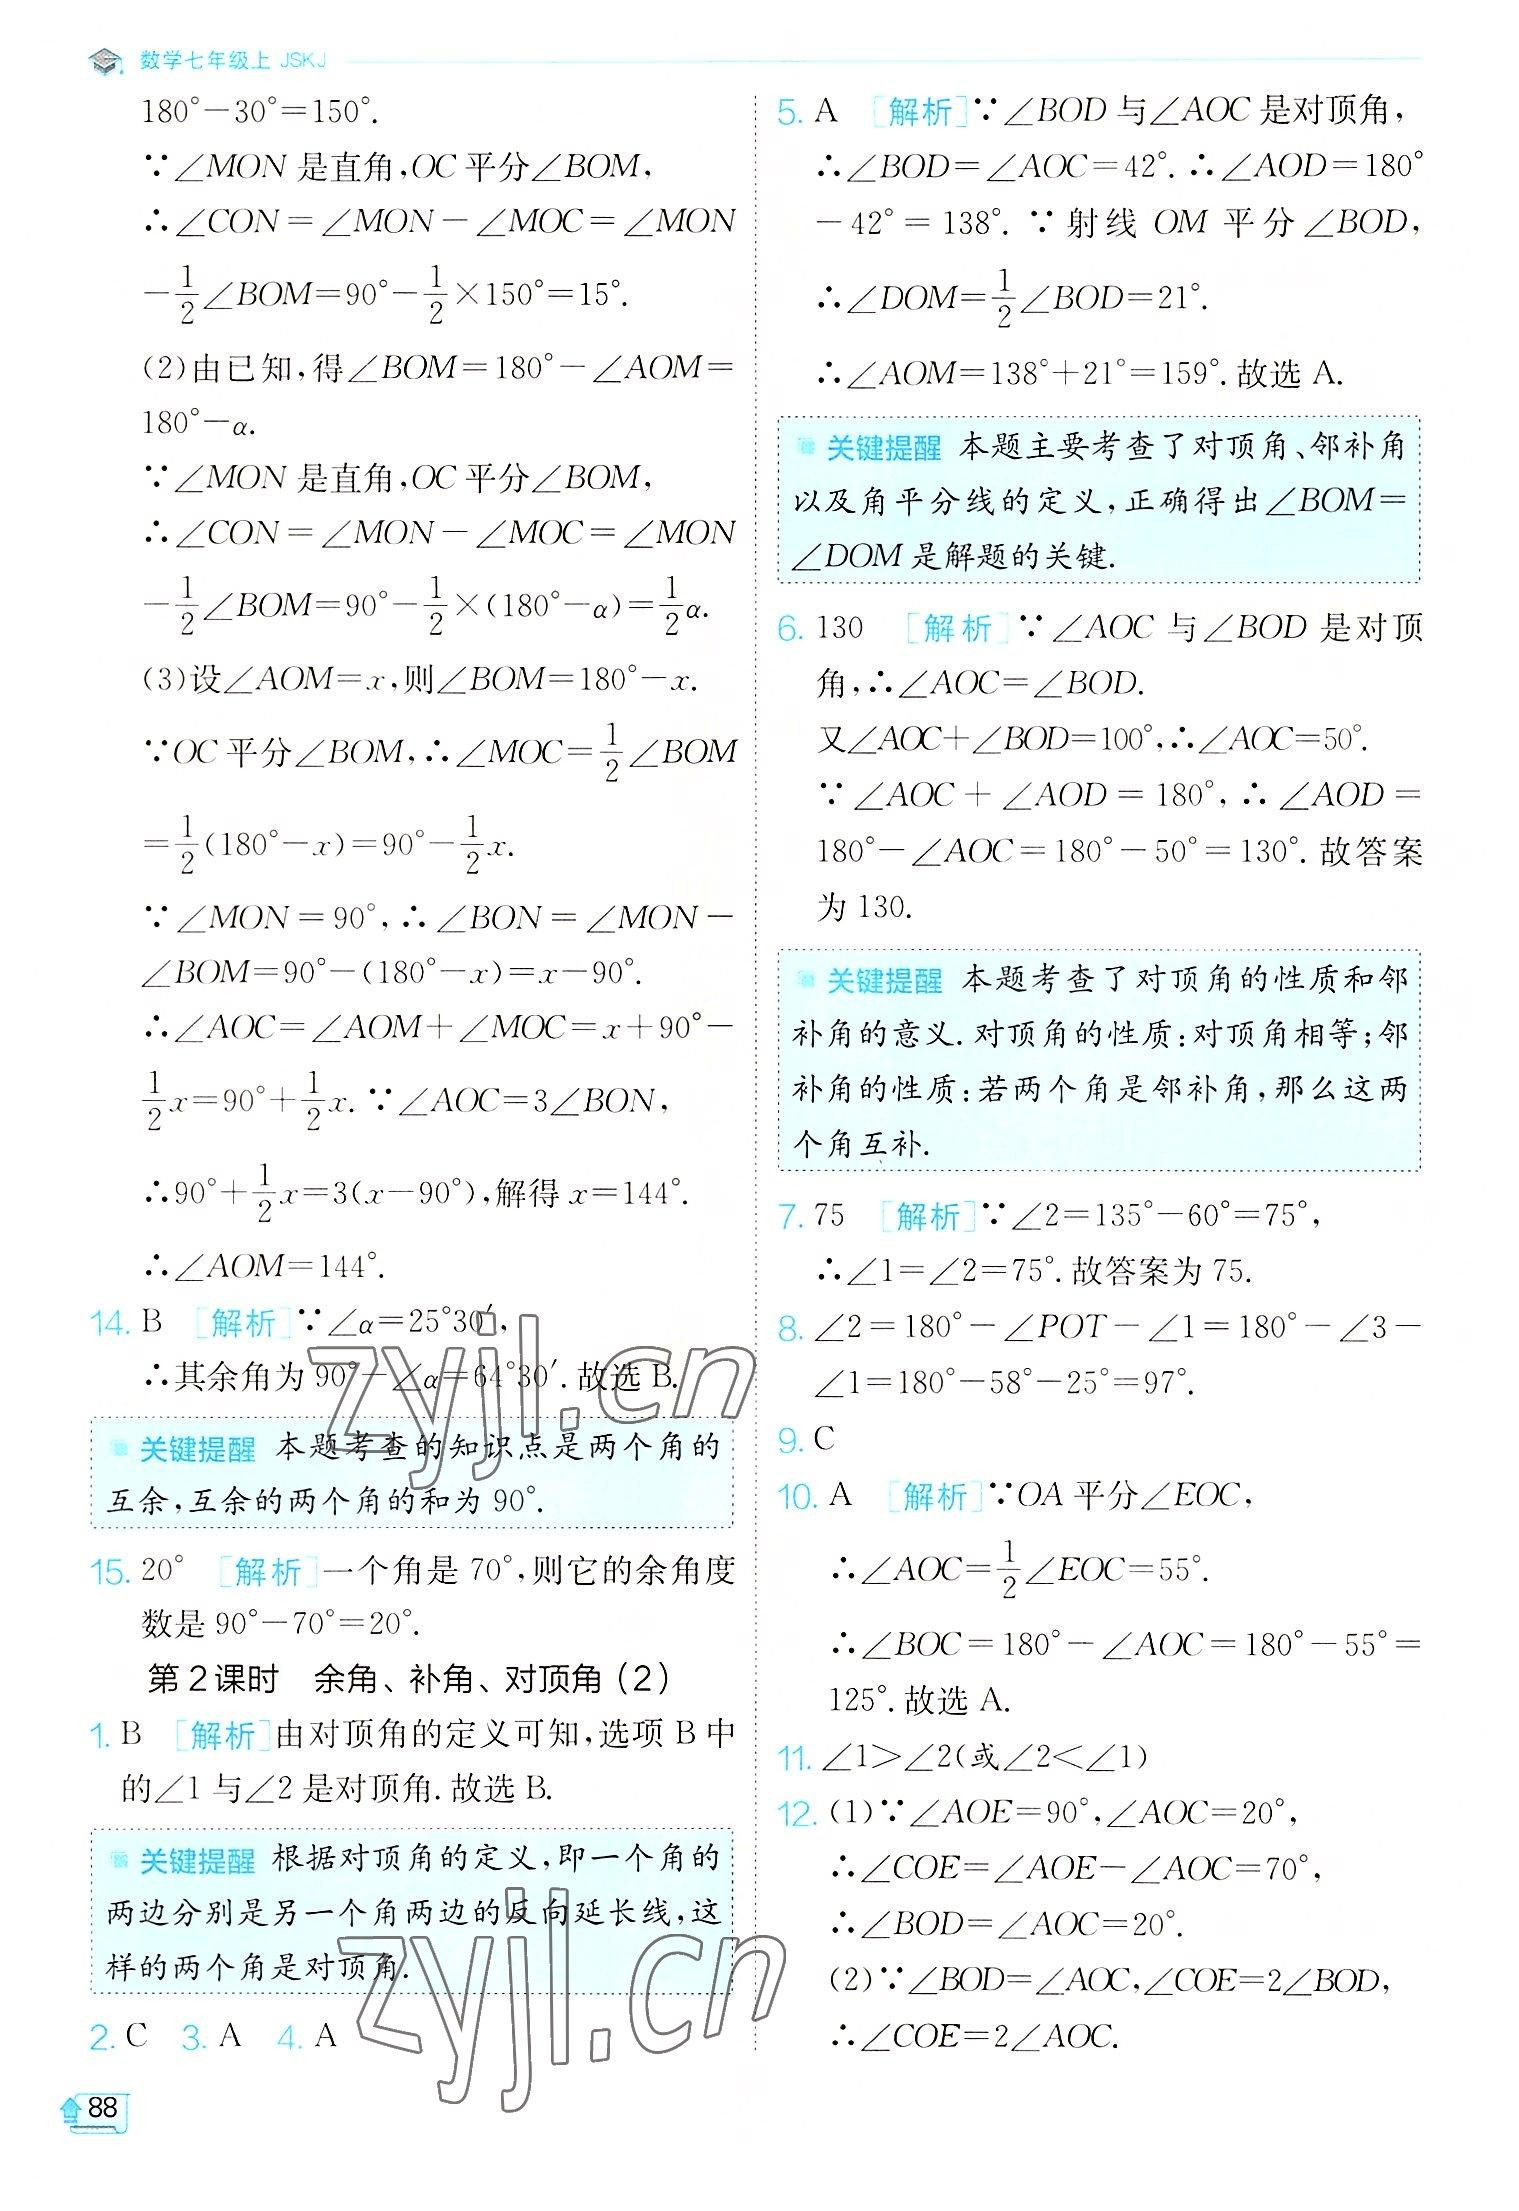 数学七年级上 JSKJ
180°－30°＝150°.
∵∠MON 是直角,OC 平分∠BOM,
∴∠CON＝∠MON－∠MOC＝∠MON
－1/2∠BOM＝90°－1/2×150°＝15°.
(2)由已知,得∠BOM＝180°－∠AOM＝
180°－α.
∵∠MON 是直角,OC 平分∠BOM,
∴∠CON＝∠MON－∠MOC＝∠MON
－1/2∠BOM＝90°－1/2×(180°－α)＝1/2α.
(3)设∠AOM＝x,则∠BOM＝180°－x.
∵OC 平分∠BOM,∴∠MOC＝1/2∠BOM
＝1/2(180°－x)＝90°－1/2x.
∵∠MON＝90°,∴∠BON＝∠MON－
∠BOM＝90°－(180°－x)＝x－90°.
∴∠AOC＝∠AOM＋∠MOC＝x＋90°－
1/2x＝90°＋1/2x.∵∠AOC＝3∠BON,
∴90°＋1/2x＝3(x－90°),解得 x＝144°.
∴∠AOM＝144°.
14. B [解析]∵∠α＝25°30′,
∴其余角为 90°－∠α＝64°30′.故选 B.
关键提醒 本题考查的知识点是两个角的
互余,互余的两个角的和为 90°.
15. 20° [解析]一个角是 70°,则它的余角度
数是 90°－70°＝20°.
第2课时 余角、补角、对顶角(2)
1. B [解析]由对顶角的定义可知,选项 B 中
的∠1 与∠2 是对顶角.故选 B.
关键提醒 根据对顶角的定义,即一个角的
两边分别是另一个角两边的反向延长线,这
样的两个角是对顶角.
2. C 3. A 4. A
88
5. A [解析]∵∠BOD 与∠AOC 是对顶角,
∴∠BOD＝∠AOC＝42°.∴∠AOD＝180°
－42°＝138°.∵射线 OM 平分∠BOD,
∴∠DOM＝1/2∠BOD＝21°.
∴∠AOM＝138°＋21°＝159°.故选 A.
关键提醒 本题主要考查了对顶角、邻补角
以及角平分线的定义,正确得出∠BOM＝
∠DOM 是解题的关键.
6. 130 [解析]∵∠AOC 与∠BOD 是对顶
角,∴∠AOC＝∠BOD.
又∠AOC＋∠BOD＝100°,∴∠AOC＝50°.
∵∠AOC＋∠AOD＝180°,∴∠AOD＝
180°－∠AOC＝180°－50°＝130°.故答案
为 130.
关键提醒 本题考查了对顶角的性质和邻
补角的意义.对顶角的性质:对顶角相等;邻
补角的性质:若两个角是邻补角,那么这两
个角互补.
7. 75 [解析]∵∠2＝135°－60°＝75°,
∴∠1＝∠2＝75°.故答案为 75.
8. ∠2＝180°－∠POT－∠1＝180°－∠3－
∠1＝180°－58°－25°＝97°.
9. C
10. A [解析]∵OA 平分∠EOC,
∴∠AOC＝1/2∠EOC＝55°.
∴∠BOC＝180°－∠AOC＝180°－55°＝
125°.故选 A.
11. ∠1＞∠2(或∠2＜∠1)
12. (1)∵∠AOE＝90°,∠AOC＝20°,
∴∠COE＝∠AOE－∠AOC＝70°,
∴∠BOD＝∠AOC＝20°.
(2)∵∠BOD＝∠AOC,∠COE＝2∠BOD,
∴∠COE＝2∠AOC.
zyjl.cn
zyjl.cn